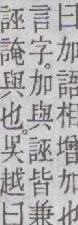 曰加語相增加也
言字。加與誣皆兼
誣䛳與也。吳越曰